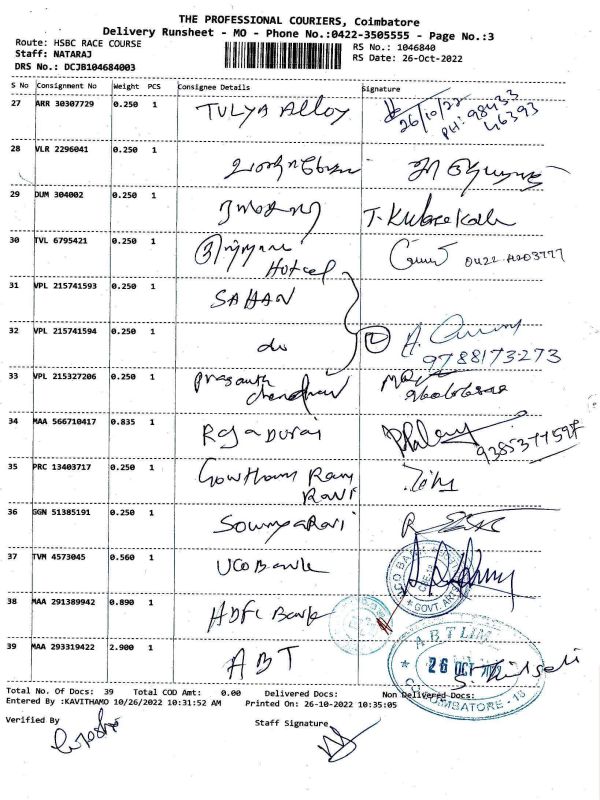 THE PROFESSIONAL COURIERS, Coimbatore
Delivery Runsheet - MO - Phone No.:0422-3505555 - Page No.:3
Route: HSBC RACE COURSE
Staff: NATARAJ
DRS No.: DCJB104684003
RS No.: 1046840
RS Date: 26-Oct-2022
S No Consignment No Weight PCS Consignee Details Signature
27 ARR 30307729 0.250 1 TULYA Alloy 26/10/22
PH: 98433
46393
28 VLR 2296041 0.250 1
29 DUM 304002 0.250 1
30 TVL 6795421 0.250 1 Hotel
31 VPL 215741593 0.250 1 SAHAN
32 VPL 215741594 0.250 1 do 2
9788173273
33 VPL 215327206 0.250 1 Prasanth
34 MAA 566710417 0.835 1 Rajadurai
35 PRC 13403717 0.250 1 Gowtham Ram
RAVI
36 GGN 51385191 0.250 1 SowmyaRavi
37 TVM 4573045 0.560 1 UCO Bank
GOVT. ART
38 MAA 291389942 0.890 1 HDFC Bank
39 MAA 293319422 2.900 1 ABT
A B T LIM
26 OCT
COIMBATORE - 18
Total No. Of Docs: 39 Total COD Amt: 0.00 Delivered Docs: Non Delivered Docs:
Entered By :KAVITHAMO 10/26/2022 10:31:52 AM Printed On: 26-10-2022 10:35:05
Verified By Staff Signature